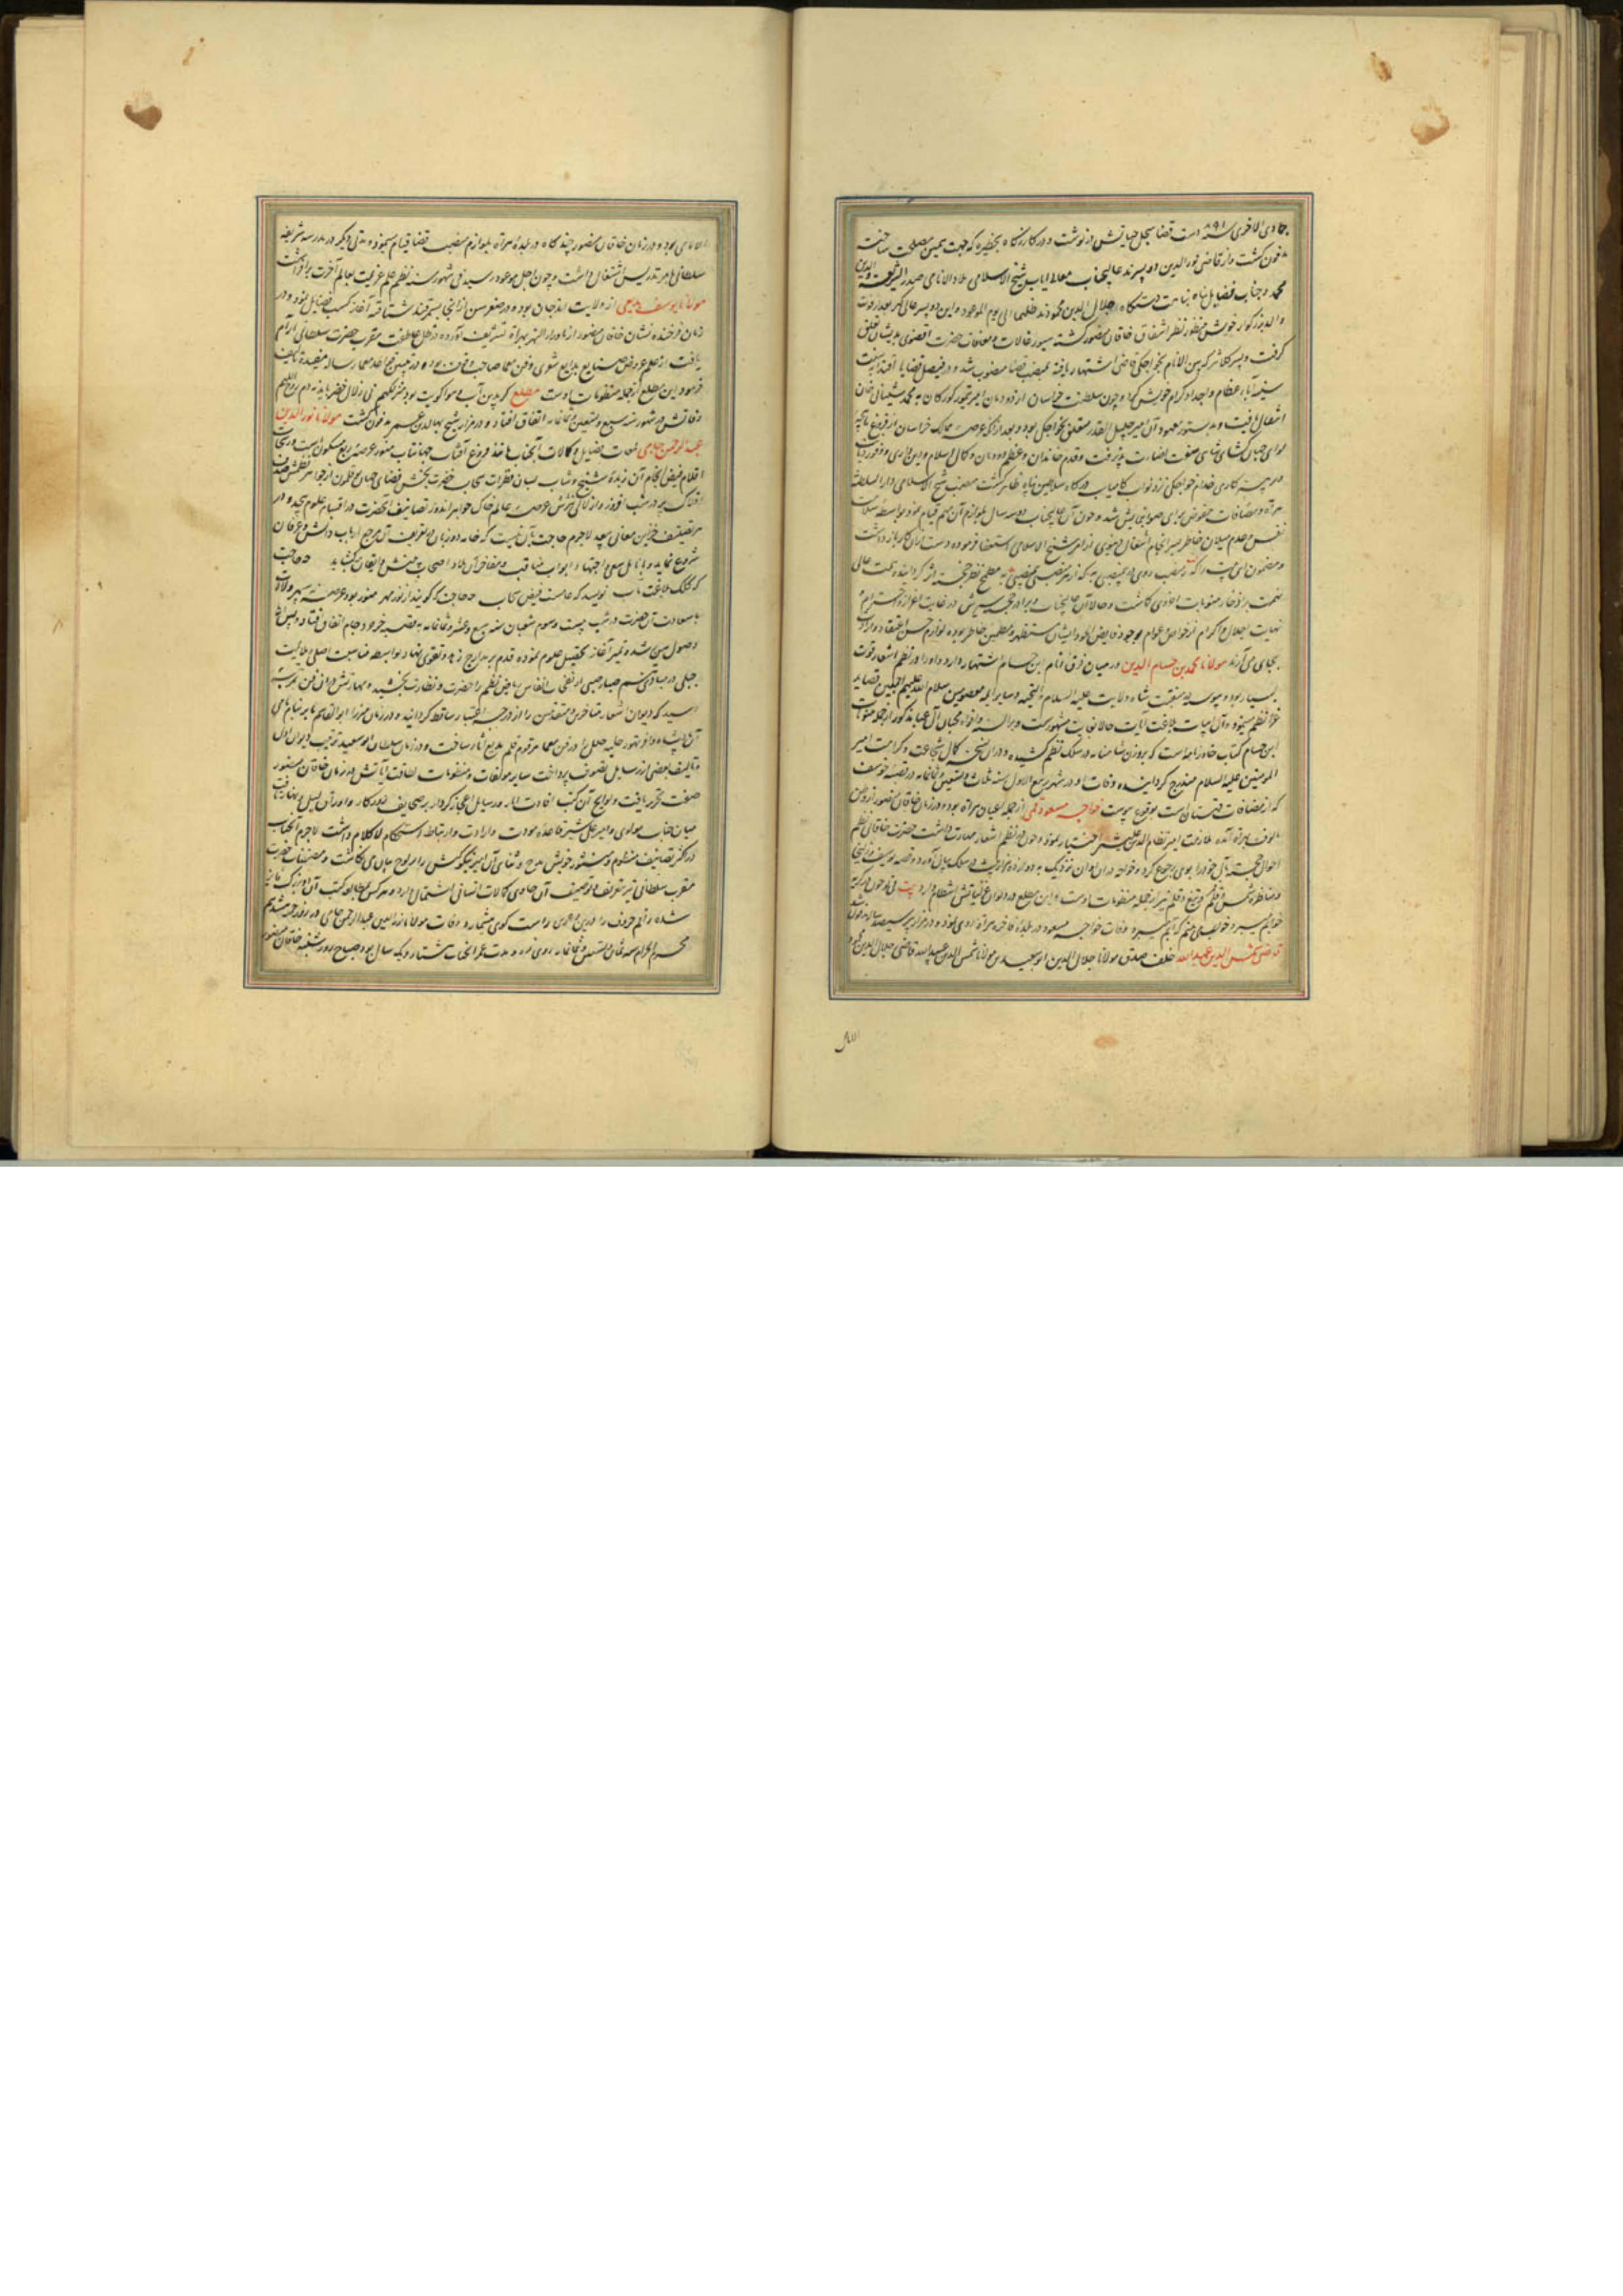 جمادی الاخری سنه ۸۹۸ دست قضا سجل حیاتش در نوشت و در کازرگاه بحظیره که جهت همین مصلحت ساخته
مدفون گشت و از قاضی نور الدین دو پسر ماند عالیجناب معالی ایاب شیخ الاسلامی ملاذ الانامی صدر الشریعة والدین
محمد و جناب فضایل پناه جلال الدین محمود مد ظلهما الی یوم الموعود و این دو پسر عالی گهر بعد از فوت
والد بزرگوار خویش منظور نظر اشفاق خاقان منصور گشته سیورغالات و معافیات حضرت اقضوی بدیشان تعلق
گرفت و پسر کلانتر که بین الانام بخواجکی قاضی اشتهار یافته بمنصب قضا منصوب شد و در فیصل قضایا اقتدا بسنت
سنیه آباء عظام و اجداد کرام خویش کرد و چون سلطنت خراسان از دودمان امیر تیمور گورکان به محمد شیبانی خان
انتقال یافت بدستور معهود آن امر جلیل القدر متعلق بخواجکی بود و بعد از آنکه عرصه ممالک خراسان از فروغ ماهچه
لوای جهان گشای شاهی صفت نضارت پذیرفت و قدم خاندان و عظم دودمان و کمال اسلام و دین داری و وفور دیانت
و پرهیزکاری خدام خواجکی نزد نواب کامیاب درگاه سلاطین پناه ظاهر گشت منصب شیخ الاسلامی دار السلطنه
هراة و مضافات مفوض برای صواب نمایش شد و چون آن عالیجناب دو سه سال بلوازم آن مهم قیام نمود بواسطه سلامت
نفس و عدم میلان خاطر بسر انجام اشغال دنیوی از امر شیخ الاسلامی استعفا فرموده دست از آن کار باز داشت
و مضمون این بیت را که ز منصب روی در بی منصبی نه که از هر منصبی بی منصبی به مطمح نظر خجسته اثر گردانیده همت عالی
نهمت بر ادخار مثوبات اخروی گماشت و حالا آن عالیجناب و برادر خجسته سیرش در غایت اعزاز و احترام و
نهایت اجلال و اکرام از خواص و عوام بوجود فایض الجود ایشان مستظهر و مطمئن خاطر بوده لوازم حسن اعتقاد و ارادت
بجای می آرند مولانا محمد بن حسام الدین در میان فرق انام بابن حسام اشتهار دارد و او را در نظم اشعار قوت
بسیار بود و پیوسته در منقبت شاه ولایت علیه السلام و التحیه و سایر ائمه معصومین سلام الله علیهم اجمعین قصاید
غرا نظم مینمود و آن ابیات بلاغت آیات حالا بغایت مشهورست و بر السنه و افواه محبان آل عبا مذکور از جمله منظومات
ابن حسام کتاب خاورنامه است که بر وزن شاهنامه در سلک نظم کشیده و در آن نسخه کمال شجاعت و کرامت امیر
المومنین علیه السلام مندرج گردانیده وفات او در شهر ربیع الاول سنه ثلث و تسعین و ثمانمایه در قصبه خوسف
که از مضافات قهستان است بوقوع پیوست خواجه مسعود قمی از جمله اعیان هراة بود و در زمان خاقان منصور از وطن
مالوف بهراة آمده ملازمت امیر نظام الدین علیشیر اختیار نمود و چون در نظم اشعار مهارت داشت حضرت خاقانی نظم
احوال خجسته مآل خود را بوی رجوع کرد و خواجه در آن اوان نزدیک به دوازده هزار بیت در سلک بیان آورد و قصه یوسف و زلیخا
و مناظره شمس و قمر و تیغ و قلم نیز از جمله منظومات اوست و این مطلع در دیوان غزلیاتش انتظام دارد بیت
وفات خواجه مسعود در بلده فاخره هراة روی نمود و در مزار پیر سیصد ساله مدفون شد
قاضی شمس الدین عبد الله خلف صدق مولانا جلال الدین ابو سعید بن مولانا شمس الدین عبد الله قاضی جلال الدین محمود
الاما
الامامی بود و در زمان خاقان منصور چند گاه در بلده هراة بلوازم منصب قضا قیام مینمود و مدتی دیگر در مدرسه شریفه
سلطانی بامر تدریس اشتغال داشت و چون اجل موعود رسید فی شهور سنه علم عزیمت بعالم آخرت برافراشت
مولانا یوسف بدیعی از ولایت اندجان بوده و در صغر سن از آنجا بسمرقند شتافته آغاز کسب فضایل نمود و در
زمان فرخنده نشان خاقان منصور از ماوراء النهر بهراة تشریف آورده در ظل عاطفت مقرب حضرت سلطانی آرام
یافت از علم عروض و صنایع بدایع شعری و فن معما صاحب وقوف بود و در تبیین قواعد معما رساله مفیده تالیف
فرمود این مطلع از جمله منظومات اوست مطلع
وفاتش در شهور سنه سبع و تسعین و ثمانمایه اتفاق افتاد و در مزار شیخ بهاء الدین عمر مدفون گشت مولانا نور الدین
عبد الرحمن جامی لمعات فضایل و کمالات آنجناب مانند فروغ آفتاب جهانتاب منور عرصه ربع مسکون است و رشحات
اقلام فیض انجام آن زبده شیخ و شاب بسان قطرات سحاب خضرت بخش فضای جهان بوقلمون از جواهر نظمش صدف
افلاک پر در شب افروز و از لآلی نثرش عرصه عالم خاک جواهر اندوز تصانیف آنحضرت در اقسام علوم بیحد و در
هر تصنیف خزاین معانی بیعد لاجرم حاجت بآن نیست که خامه دو زبان در تعریف آن مرجع ارباب دانش و عرفان
شروع نماید و بانامل سعی و اجتهاد ابواب مناقب و مفاخر آن ملاذ اصحاب بینش و ایقان بگشاید چه حاجت
که کلک بلاغت مآب نویسد که عامست فیض سحاب چه حاجت که گویند از نور مهر منور بود عرصه نه سپهر ولادت
با سعادت آن حضرت در شب بیست و سوم شعبان سنه سبع و عشر و ثمانمایه به قصبه خرجرد جام اتفاق افتاد و پس از
وصول بسن رشد و تمیز آغاز تحصیل علوم نموده قدم بر مدارج زهد و تقوی نهاد بواسطه مناسبت اصلی و قابلیت
جبلی در مبادی نسیم صبا و صبی از نفحات انفاس ریاض نظم را خضرت و نضارت بخشید و مهارتش در آن فن بمرتبه
رسید که دیوان اشعار متاخرین و متقدمین را از درجه اعتبار ساقط گردانید و در زمان میرزا ابو القاسم بابر بنام نامی
آن پادشاه والا تهور حلیه حلل را در فن معما مرقوم قلم بدیع آثار ساخت و در زمان سلطان ابو سعید ترتیب دیوان اول
و تالیف بعضی از رسایل تصوف پرداخت سایر مولفات و منظومات لطافت آیاتش در زمان خاقان منصور
صفت تحریر یافت و لوامع آن کتب افادت اثر و رسایل اعجاز کردار بر صحایف روزگار و اوراق لیل و نهار تافت
میان جناب مولوی و امیر علی شیر قاعده مودت و ارادت و ارتباط و استحکام لا کلام داشت لاجرم آنجناب
در اکثر تصانیف منظوم و منثور خویش مدح و ثنای آن امیر نیکو کنش را بر لوح بیان می نگاشت و مصنفات حضرت
مقرب سلطانی نیز بتعریف و توصیف آن حاوی کمالات انسانی اشتمال دارد و هر کس بمطالعه کتب آن دو بزرگ فایز
شده راقم حروف را درین دعوی راست گوی میشمارد وفات مولانا نور الدین عبد الرحمن جامی در روز جمعه هژدهم
محرم الحرام سنه ثمان و تسعین و ثمانمایه روی نمود و مدت عمر آنجناب هشتاد و یک سال بود صباح روز شنبه خاقان منصور